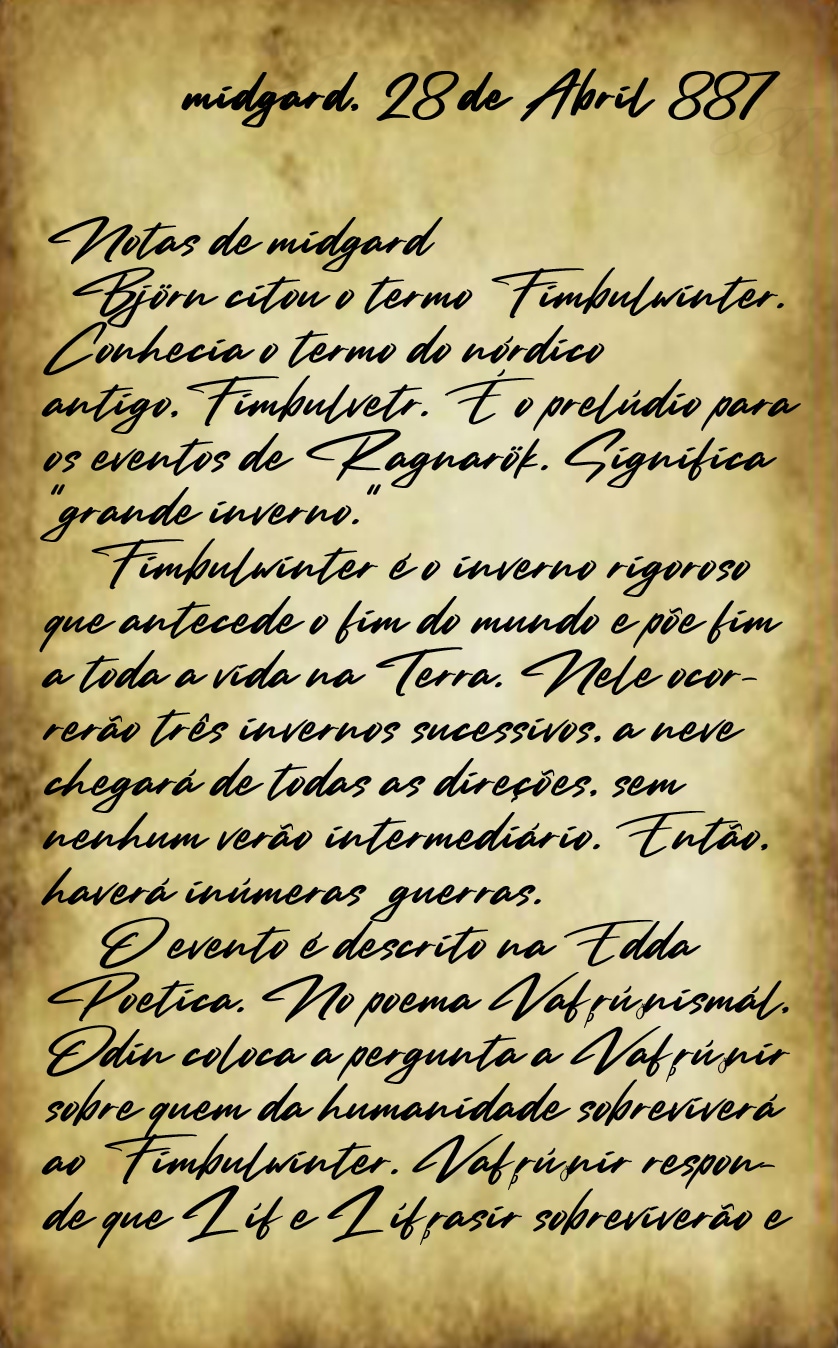 midgard. 28 de Abril 887
Notas de midgard
Björn citou o termo Fimbulwinter.
Conhecia o termo do nórdico
antigo. Fimbulvetr. É o prelúdio para
os eventos de Ragnarök. Significa
"grande inverno."
Fimbulwinter é o inverno rigoroso
que antecede o fim do mundo e põe fim
a toda a vida na Terra. Nele ocor-
rerão três invernos sucessivos. a neve
chegará de todas as direções. sem
nenhum verão intermediário. Então.
haverá inúmeras guerras.
O evento é descrito na Edda
Poetica. No poema Vafþrúðnismál.
Odin coloca a pergunta a Vafþrúðnir
sobre quem da humanidade sobreviverá
ao Fimbulwinter. Vafþrúðnir respon-
de que Líf e Lífþrasir sobreviverão e